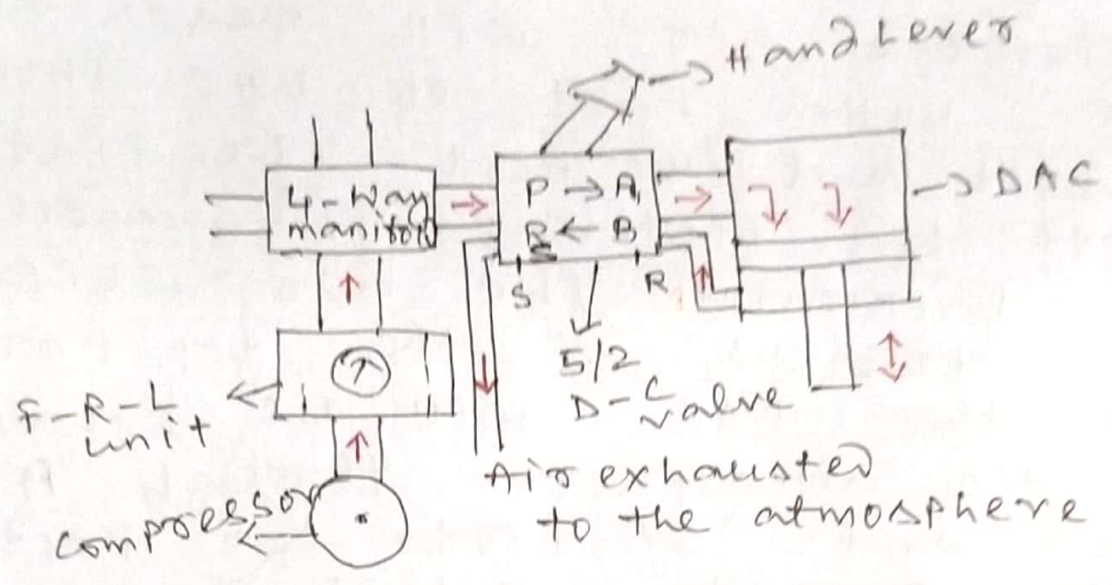 Hand Lever
4-way
manitor
P → A
R ← B
DAC
S
R
5/2
D-C
valve
F-R-L
unit
compressor
Air exhausted
to the atmosphere